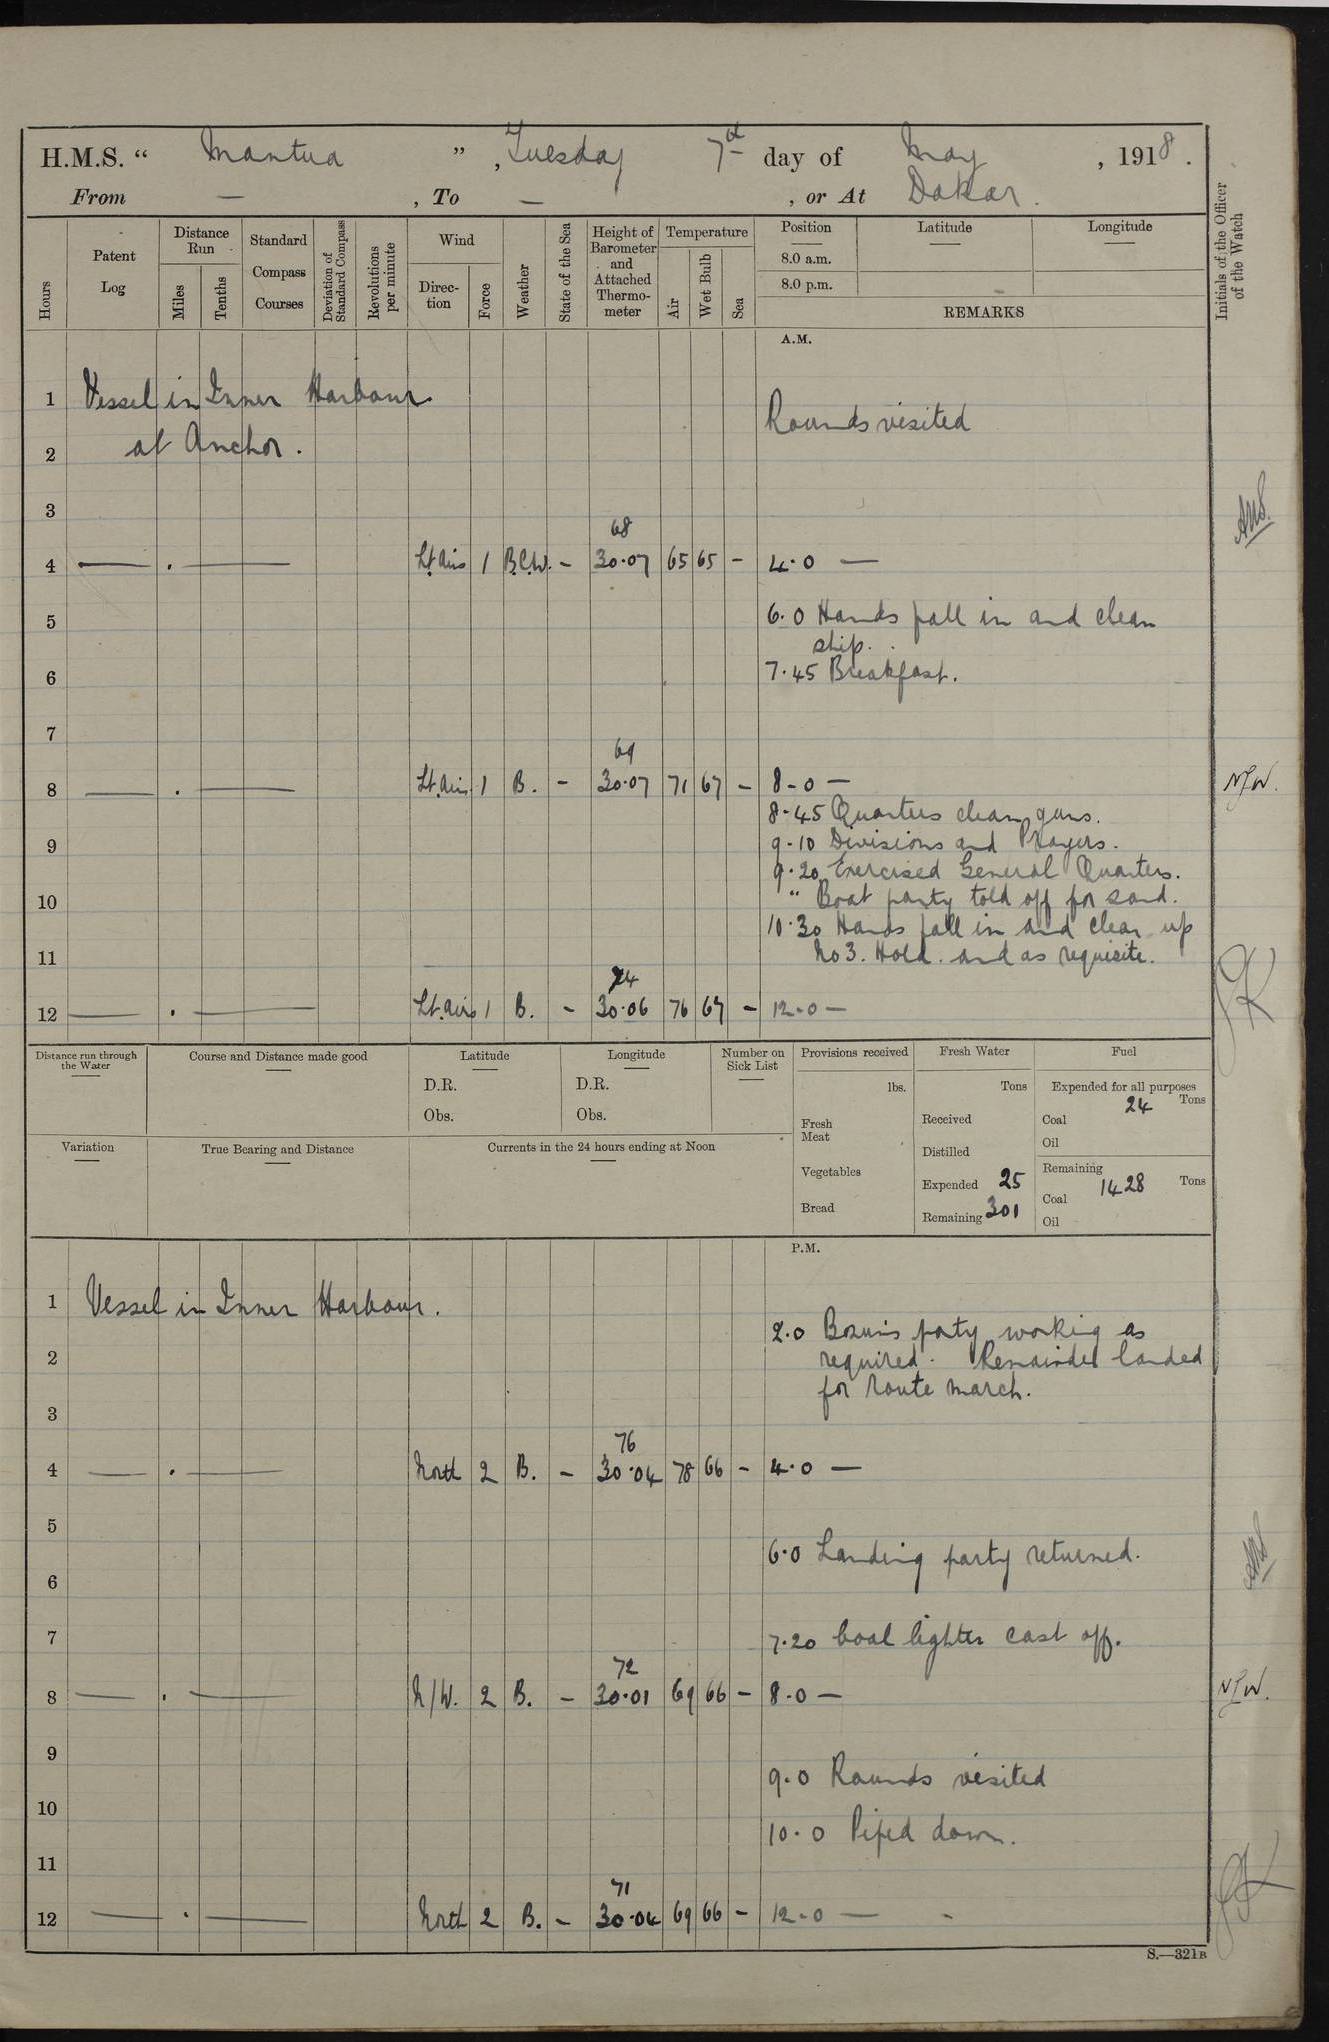 H.M.S. “ Mantua ” , Tuesday 7th day of May , 1918 .
From — , To — , or At Dakar .
Hours
Patent Log
Distance Run
Miles
Tenths
Standard Compass Courses
Deviation of Standard Compass
Revolutions per minute
Wind
Direction
Force
Weather
State of the Sea
Height of Barometer and Attached Thermometer
Temperature
Air
Wet Bulb
Sea
Position
8.0 a.m.
8.0 p.m.
Latitude
Longitude
REMARKS
Initials of the Officer of the Watch
A.M.
1 Vessel in Inner Harbour
Rounds visited
2 at Anchor.
3
68
4 — . — Lt. Airs 1 B.C.W. – 30.07 65 65 – 4.0 —
5 6.0 Hands fall in and clean
ship.
6 7.45 Breakfast.
7
69
8 — . — Lt. Airs 1 B. – 30.07 71 67 – 8-0 — N.J.W.
8-45 Quarters clean guns.
9 9-10 Divisions and Prayers.
9.20 Exercised General Quarters.
10 " Boat party told off for sand.
10.30 Hands fall in and clear up
11 No 3. Hold. and as requisite.
74
12 — . — Lt. Airs 1 B. – 30.06 76 67 – 12.0 —
Distance run through the Water
Course and Distance made good
Latitude
D.R.
Obs.
Longitude
D.R.
Obs.
Number on Sick List
Provisions received
lbs.
Fresh Meat
Vegetables
Bread
Fresh Water
Tons
Received
Distilled
Expended 25
Remaining 301
Fuel
Expended for all purposes
Coal 24 Tons
Oil
Remaining
Coal 1428 Tons
Oil
Variation
True Bearing and Distance
Currents in the 24 hours ending at Noon
P.M.
1 Vessel in Inner Harbour.
2.0 Bosun's party working as
2 required. Remainder landed
for route march.
3
76
4 — . — North 2 B. – 30.04 78 66 – 4.0 —
5
6.0 Landing party returned.
6
7 7.20 Coal lighter cast off.
72
8 — . — N/W. 2 B. – 30.01 69 66 – 8.0 — N.J.W.
9
9.0 Rounds visited
10
10.0 Piped down.
11
71
12 — . — North 2 B. – 30.04 69 66 – 12.0 — -
S.—321B